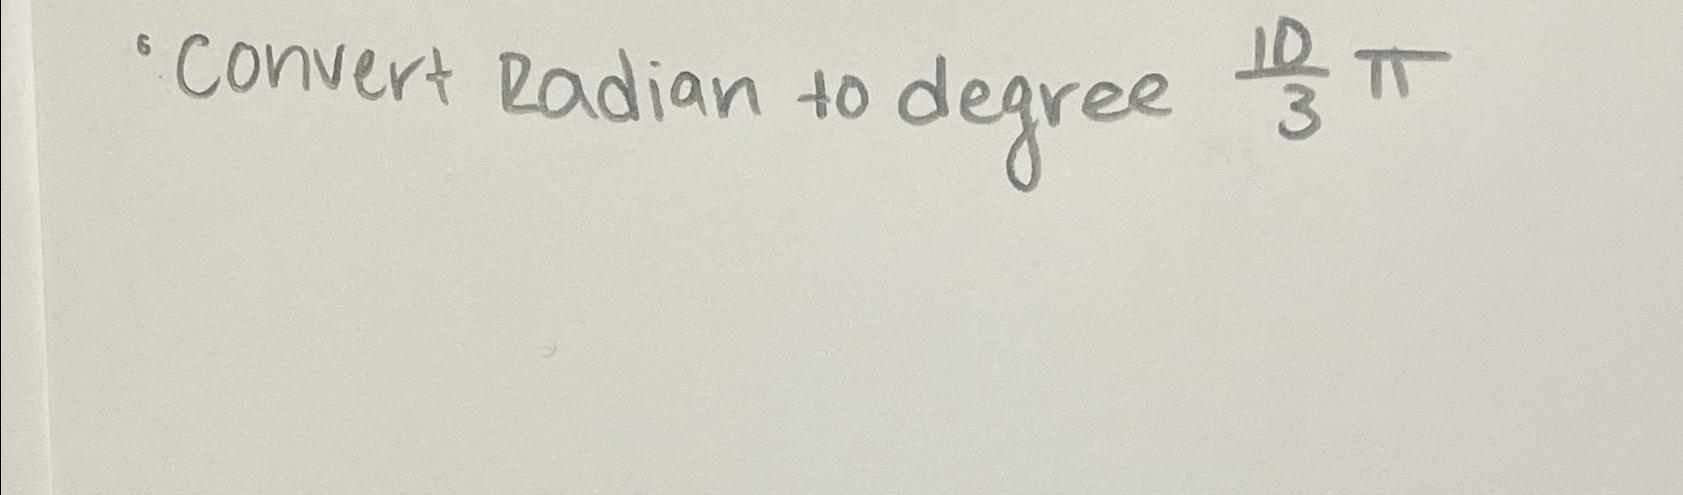 Convert Radian to degree 10/3 π